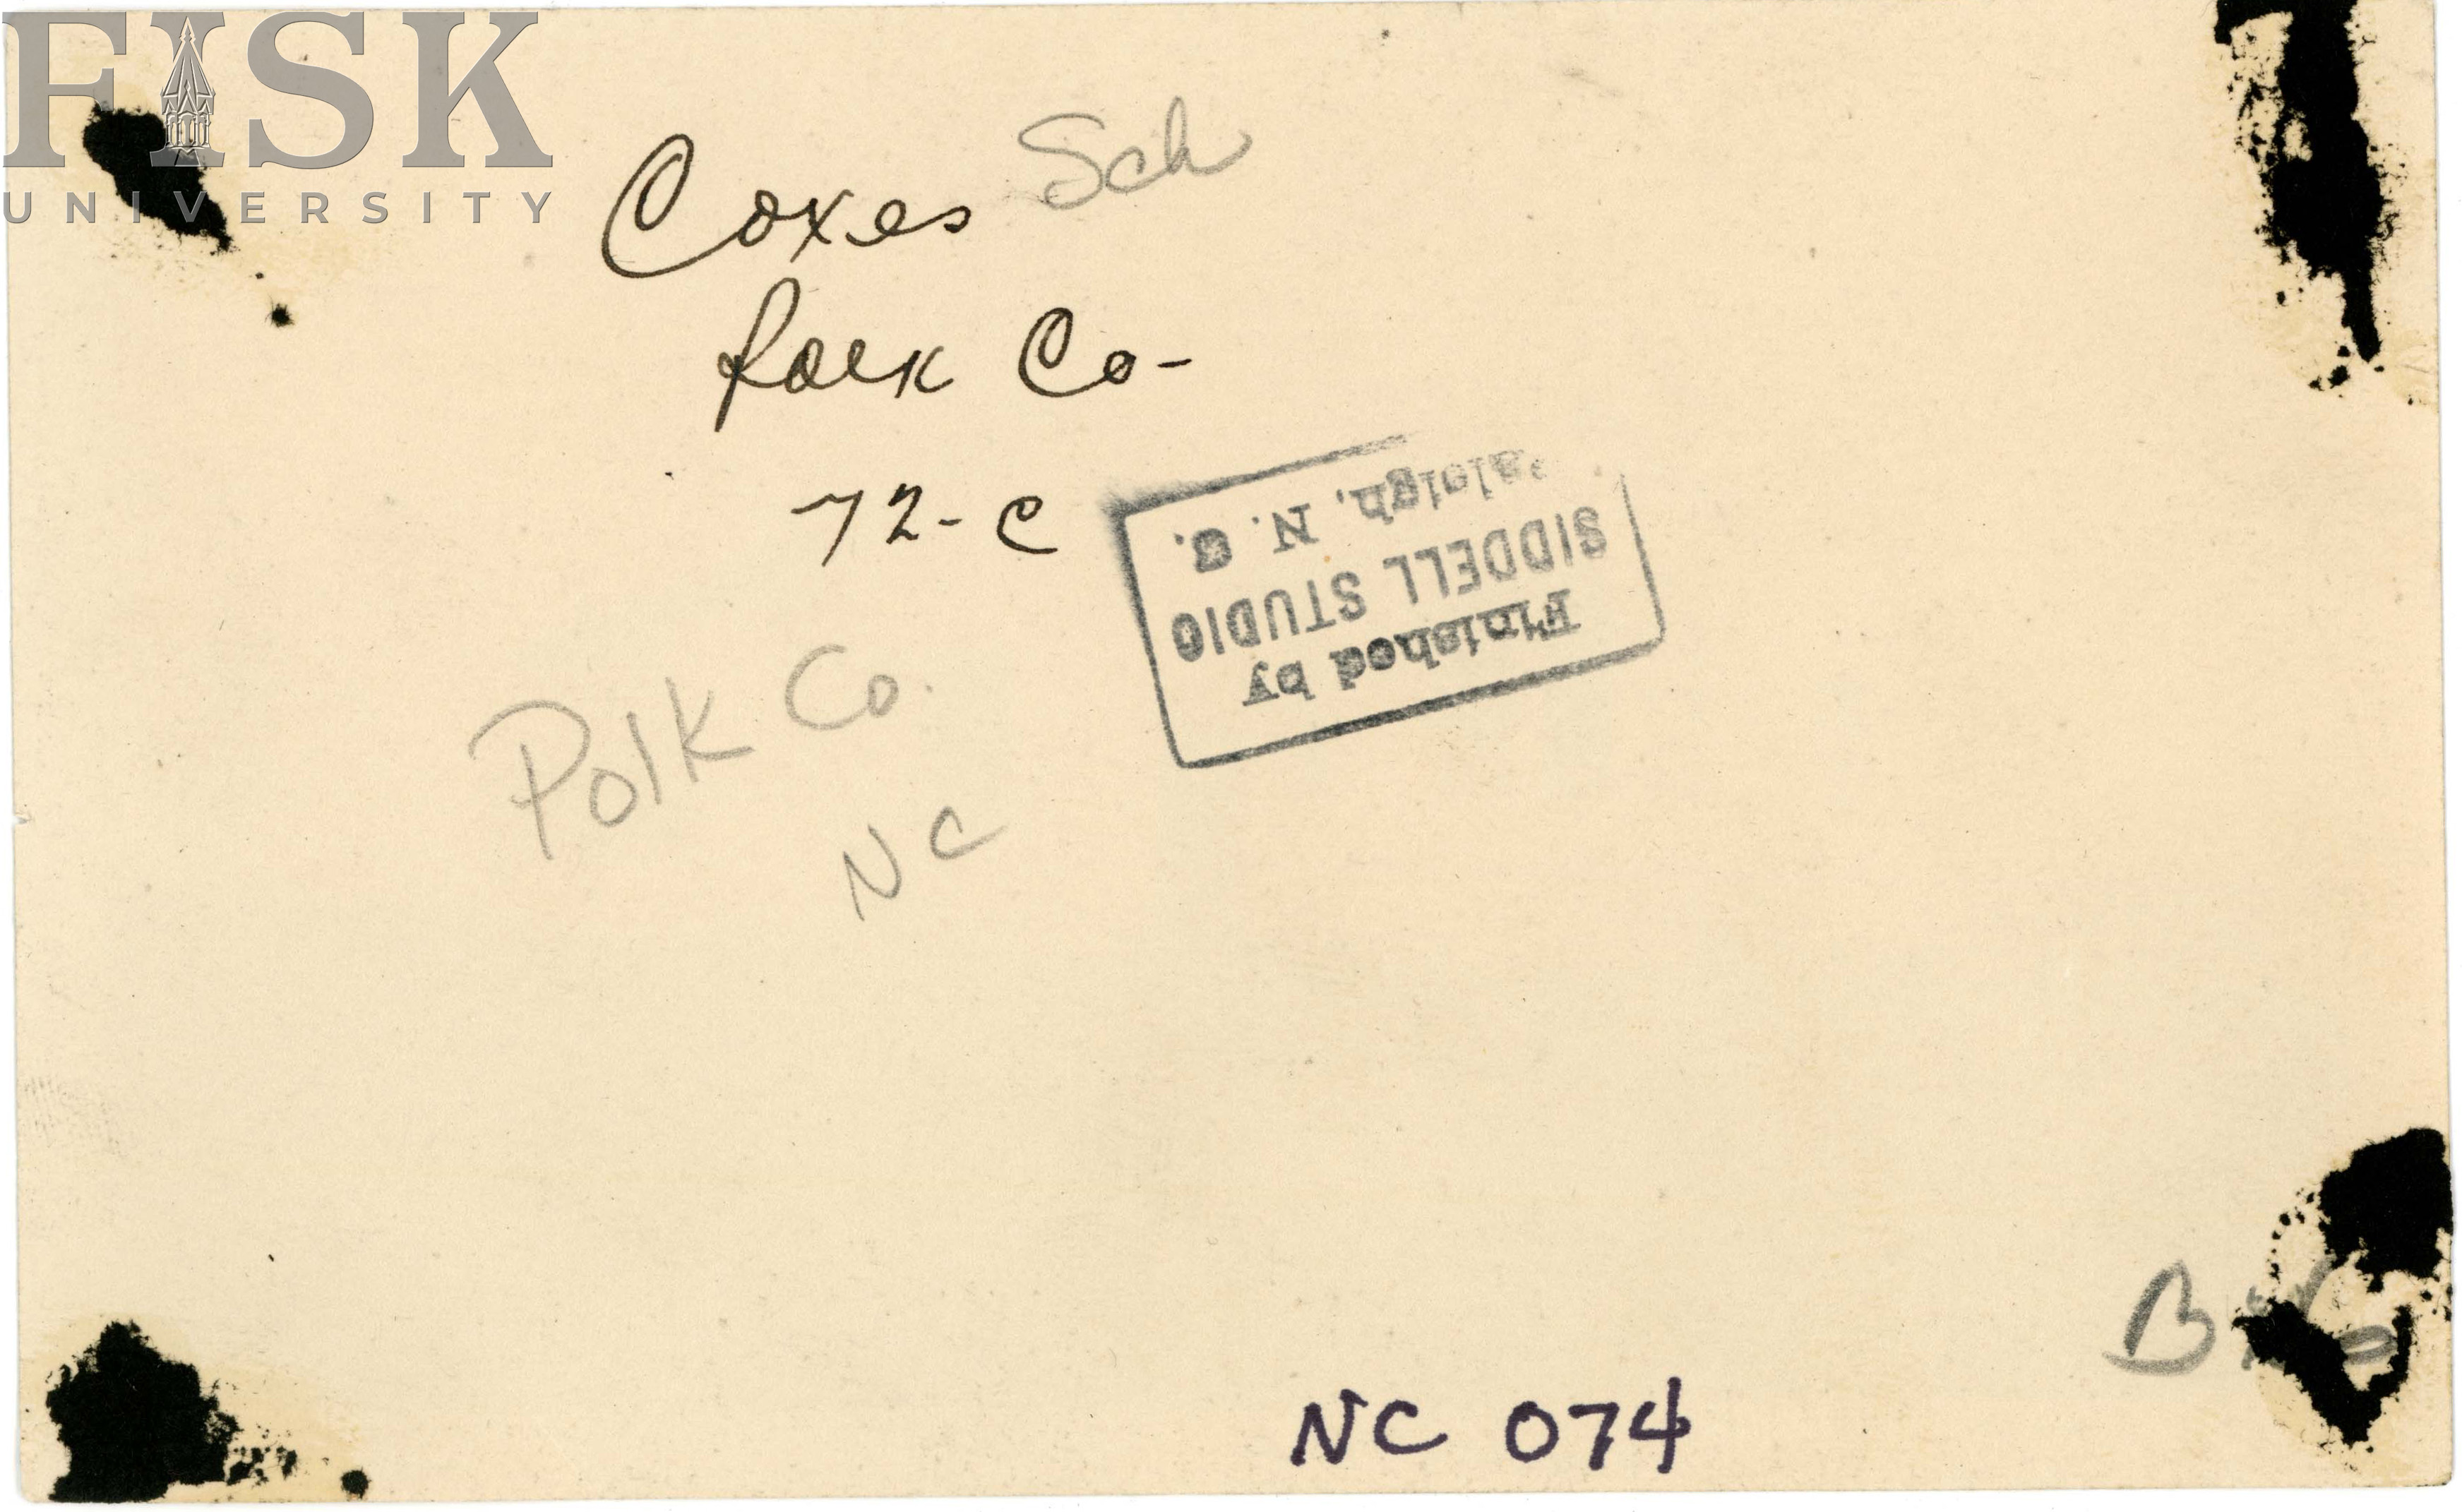 FISK
UNIVERSITY
Coxes Sch
Polk Co-
72-C
Finished by
SIDDELL STUDIO
Raleigh, N. C.
Polk Co.
NC
NC 074